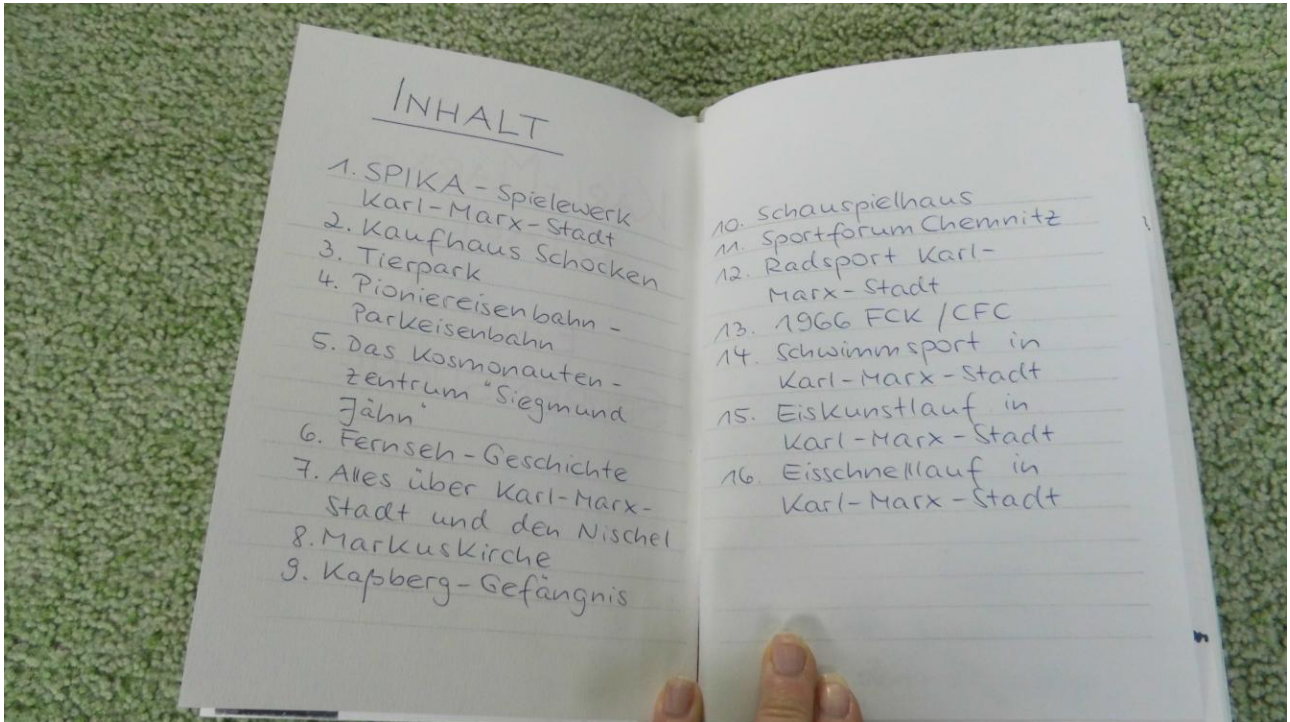 INHALT
1. SPIKA - Spielewerk
Karl-Marx-Stadt
2. Kaufhaus Schocken
3. Tierpark
4. Pioniereisenbahn -
Parkeisenbahn
5. Das Kosmonauten-
zentrum "Siegmund
Jähn"
6. Fernseh-Geschichte
7. Alles über Karl-Marx-
Stadt und den Nischel
8. Markuskirche
9. Kaßberg-Gefängnis
10. Schauspielhaus
11. Sportforum Chemnitz
12. Radsport Karl-
Marx-Stadt
13. 1966 FCK / CFC
14. Schwimmsport in
Karl-Marx-Stadt
15. Eiskunstlauf in
Karl-Marx-Stadt
16. Eisschnelllauf in
Karl-Marx-Stadt